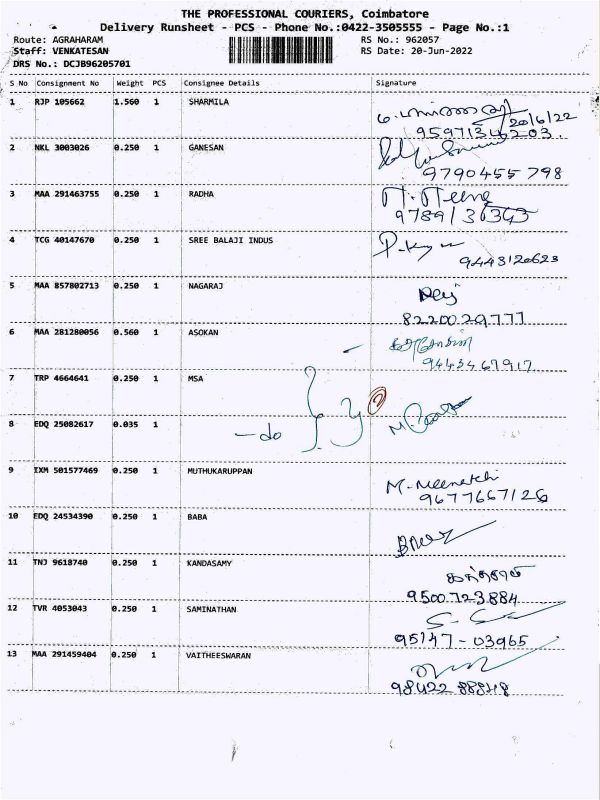 THE PROFESSIONAL COURIERS, Coimbatore
Delivery Runsheet - PCS - Phone No.:0422-3505555 - Page No.:1
Route: AGRAHARAM RS No.: 962057
Staff: VENKATESAN RS Date: 20-Jun-2022
DRS No.: DCJB96205701
S No Consignment No Weight PCS Consignee Details Signature
1 RJP 105662 1.560 1 SHARMILA
20/6/22
2 NKL 3003026 0.250 1 GANESAN
9790455 798
3 MAA 291463755 0.250 1 RADHA
4 TCG 40147670 0.250 1 SREE BALAJI INDUS
9443120623
5 MAA 857802713 0.250 1 NAGARAJ
8220029777
6 MAA 281280056 0.560 1 ASOKAN
9443467917
7 TRP 4664641 0.250 1 MSA
8 EDQ 25082617 0.035 1 -do
9 IXM 501577469 0.250 1 MUTHUKARUPPAN
9677667126
10 EDQ 24534390 0.250 1 BABA
11 TNJ 9618740 0.250 1 KANDASAMY
9500723884
12 TVR 4053043 0.250 1 SAMINATHAN
95147-03965
13 MAA 291459404 0.250 1 VAITHEESWARAN
98422 88848